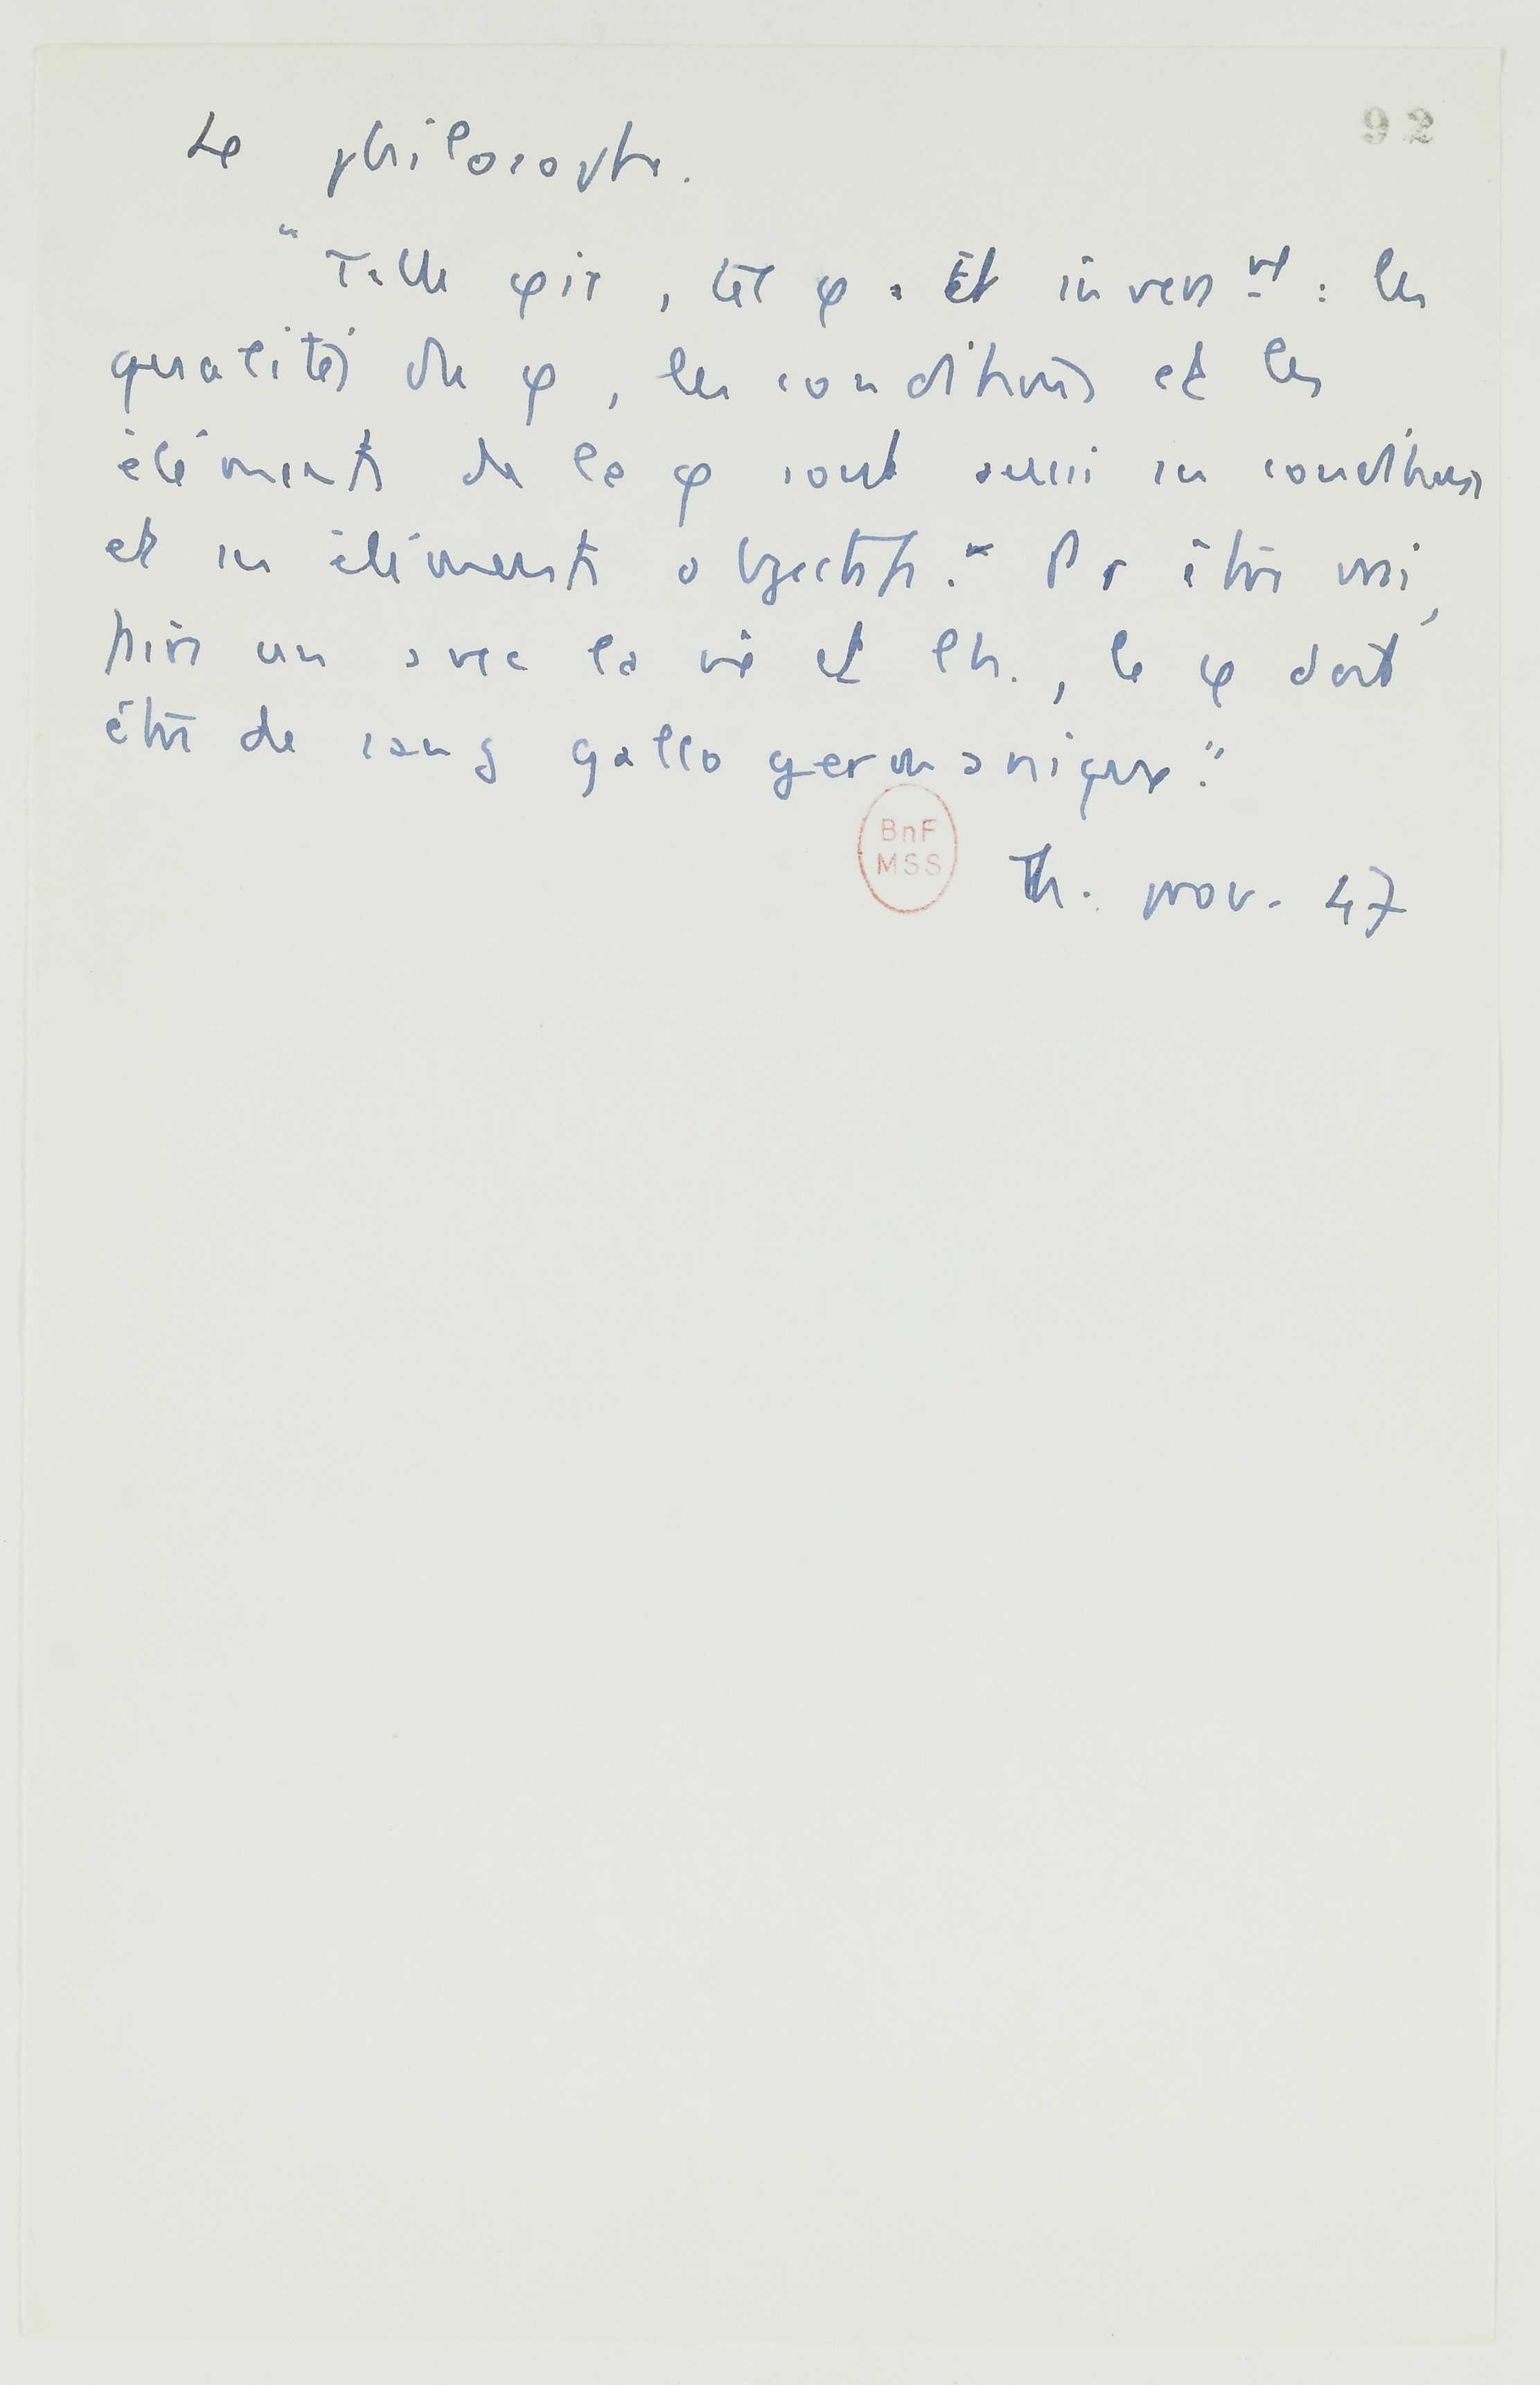 92
Le philosophe.
"Telle φie, tel φ. Et inversnt : les
qualités du φ, les conditions et les
éléments de la φ sont aussi ses conditions
et ses éléments objectifs." Pr être vrai,
faire un avec la vie et l'h., le φ doit
être de sang gallo germanique."
BnF
MSS
Th. prov. 47